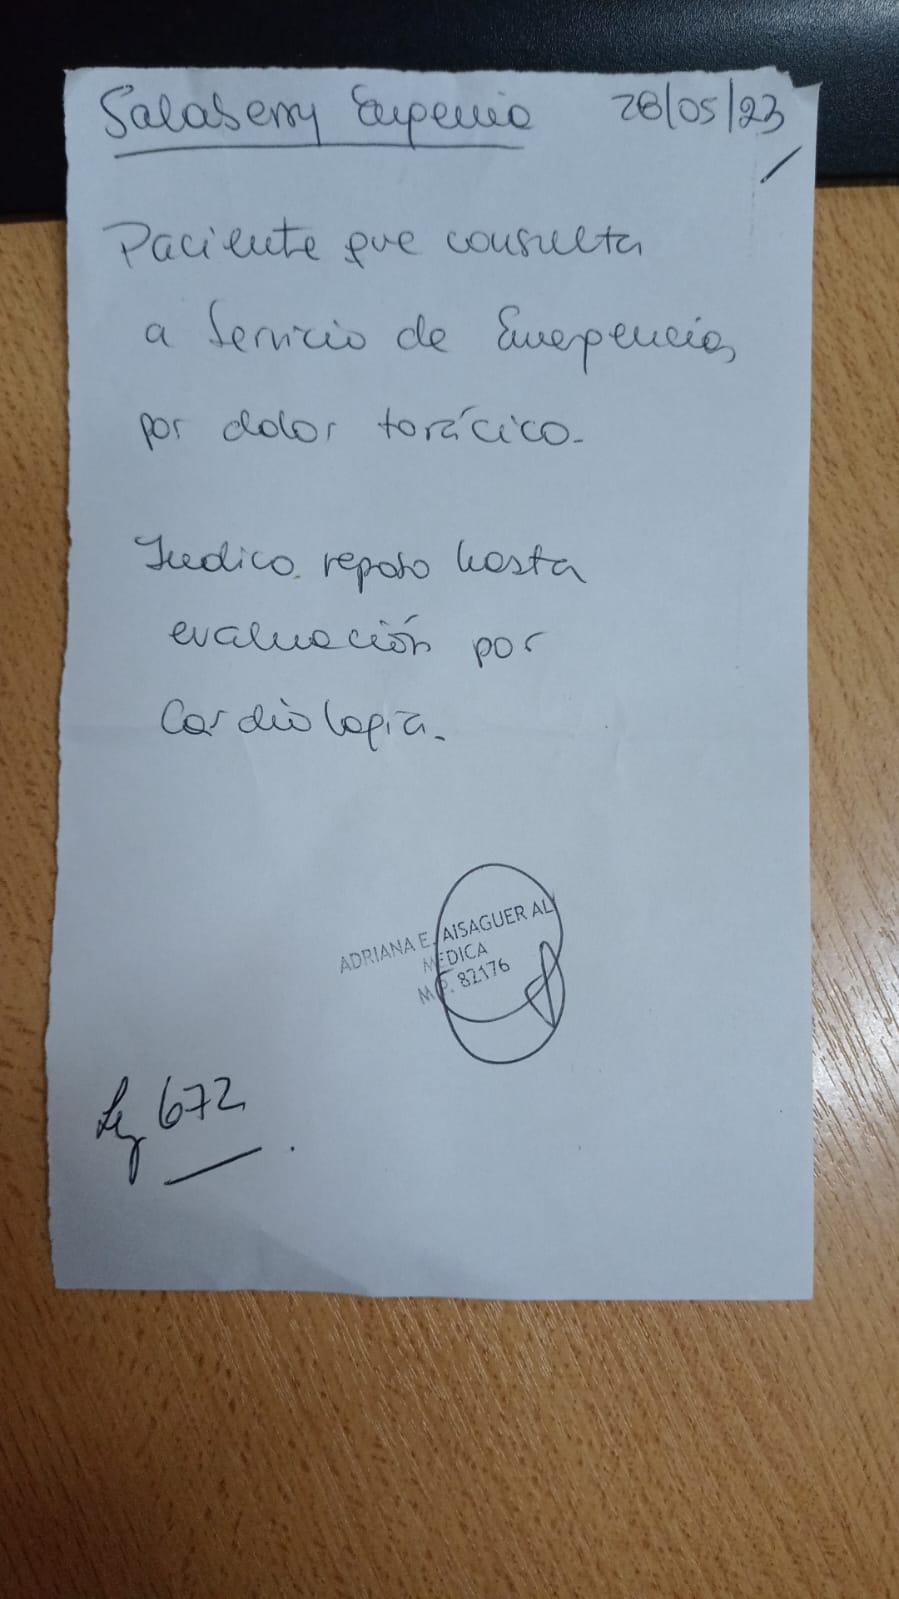 Salaberry Eugenia 28/05/23
Paciente que consulta
a Servicio de Emergencias
por dolor torácico.
Indico reposo hasta
evaluación por
Cardiología.
ADRIANA E. AISAGUER AL
MEDICA
M.P. 82176
Leg 672